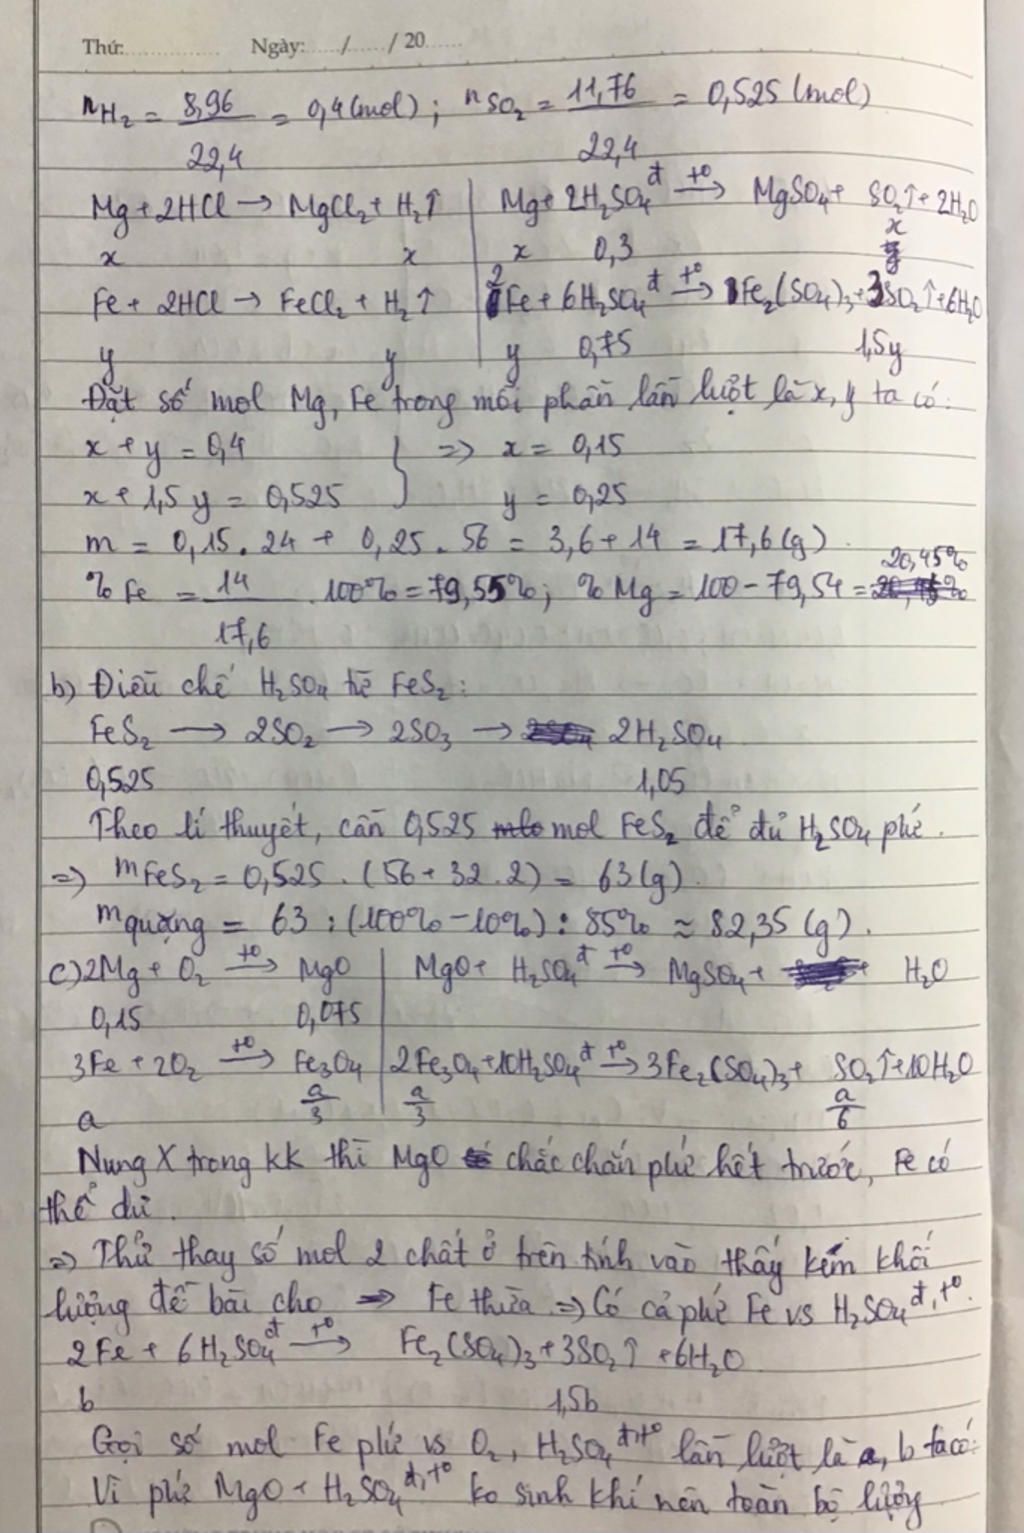 Thứ: Ngày: / / 20
nH₂ = 8,96/22,4 = 0,4 (mol) ; nSO₂ = 11,76/22,4 = 0,525 (mol)
Mg + 2HCl → MgCl₂ + H₂↑ | Mg + 2H₂SO₄đ →t° MgSO₄ + SO₂↑ + 2H₂O
x x x 0,3 x
Fe + 2HCl → FeCl₂ + H₂↑ | 2Fe + 6H₂SO₄đ →t° 1Fe₂(SO₄)₃ + 3SO₂↑ + 6H₂O
y y y 0,75 1,5y
Đặt số mol Mg, Fe trong mỗi phần lần lượt là x, y ta có:
x + y = 0,4 } => x = 0,15
x + 1,5y = 0,525 y = 0,25
m = 0,15.24 + 0,25.56 = 3,6 + 14 = 17,6 (g).
%Fe = 14/17,6 .100% = 79,55% ; %Mg = 100 - 79,54 = 20,45%
b) Điều chế H₂SO₄ từ FeS₂:
FeS₂ → 2SO₂ → 2SO₃ → 2H₂SO₄
0,525 1,05
Theo lí thuyết, cần 0,525 mol FeS₂ để đủ H₂SO₄ phứ.
=> mFeS₂ = 0,525.(56+32.2) = 63 (g).
mquặng = 63 : (100%-10%) : 85% ≈ 82,35 (g).
c) 2Mg + O₂ →t° MgO | MgO + H₂SO₄đ →t° MgSO₄ + H₂O
0,15 0,075
3Fe + 2O₂ →t° Fe₃O₄ | 2Fe₃O₄ + 10H₂SO₄đ →t° 3Fe₂(SO₄)₃ + SO₂↑ + 10H₂O
a a/3 a/3 a/6
Nung X trong kk thì MgO chắc chắn phứ hết trước, Fe có
thể dư.
=> Thử thay số mol 2 chất ở trên tính vào thấy kém khối
lượng đề bài cho => Fe thừa => Có cả phứ Fe vs H₂SO₄đ,t°.
2Fe + 6H₂SO₄đ →t° Fe₂(SO₄)₃ + 3SO₂↑ + 6H₂O
b 1,5b
Gọi số mol Fe phứ vs O₂, H₂SO₄đ,t° lần lượt là a, b ta có:
Vì phứ MgO + H₂SO₄đ,t° ko sinh khí nên toàn bộ lượng